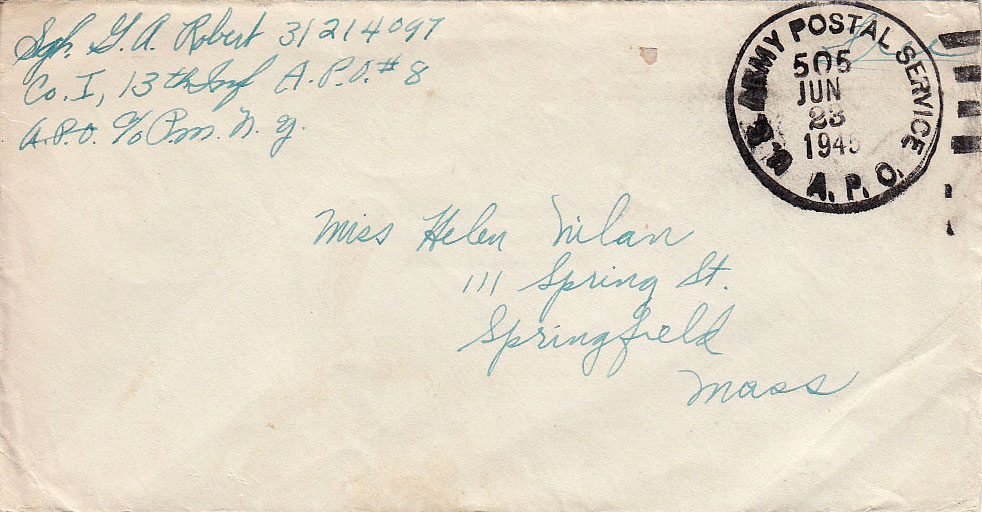 Sgt. G. A. Robert 31214097
Co. I, 13th Inf A.P.O. #8
A.P.O. c/o P.m. N.Y.
Free
U.S. ARMY POSTAL SERVICE
505
JUN
23
1945
A.P.O.
Miss Helen Nilan
111 Spring St.
Springfield
Mass